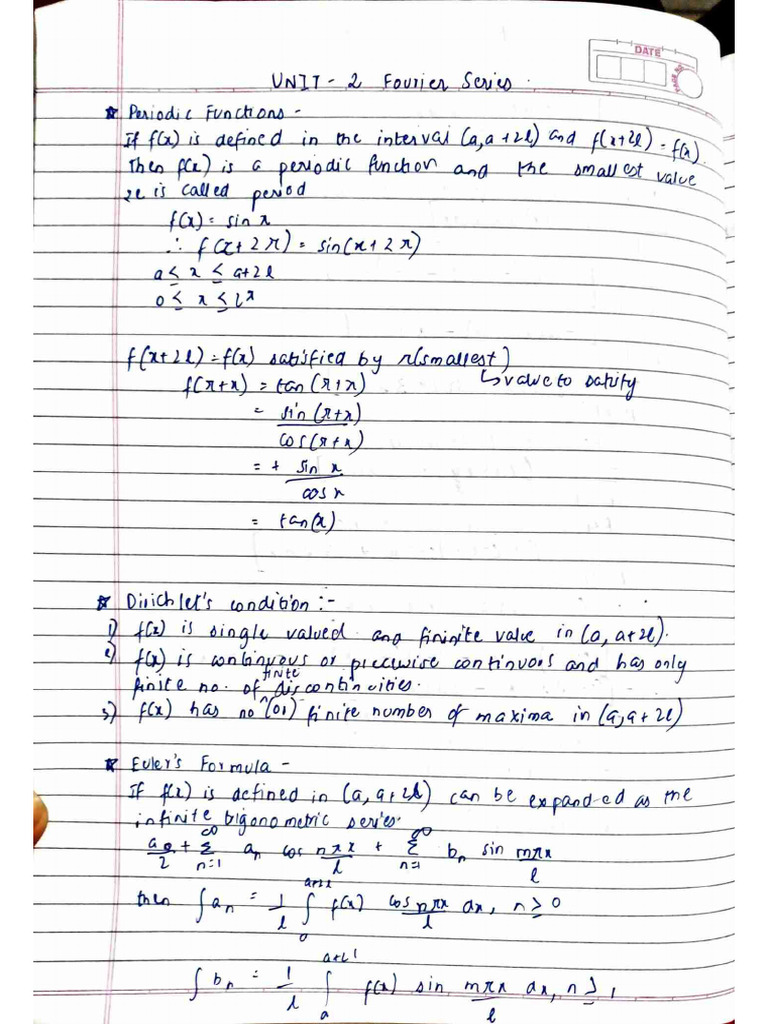 DATE
UNIT - 2 Fourier Series .
☆ Periodic Functions -
If f(x) is defined in the interval (a, a+2l) and f(x+2l) = f(x).
Then f(x) is a periodic function and the smallest value
2l is called period
f(x) = sin x
∴ f(x+2π) = sin(x+2π)
a ≤ x ≤ a+2l
0 ≤ x ≤ 2π
f(x+2l) = f(x) satisfied by π(smallest)
f(π+x) = tan(π+x) ↳ value to satisfy
= sin(π+x)
cos(π+x)
= + sin x
cos x
= tan(x)
☆ Dirichlet's condition :-
1) f(x) is single valued and fininite value in (a, a+2l).
2) f(x) is continuous or piecewise continuous and has only
finite
finite no. of ^ discontinuities.
3) f(x) has no (or) finite number of maxima in (a, a+2l)
☆ Euler's Formula -
If f(x) is defined in (a, a+2l) can be expanded as the
infinite trigonometric series.
a₀/2 + ∞Σn=1 aₙ cos nπx/l + ∞Σn=1 bₙ sin nπx/l
then ∫aₙ = 1/l ∫ f(x) cos nπx/l dx, n ≥ 0
∫bₙ = 1/l ∫ₐ f(x) sin nπx/l dx, n ≥ 1